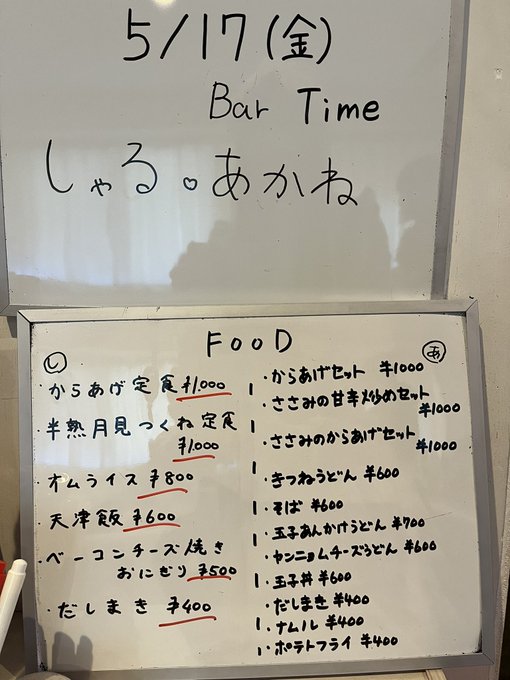 5/17(金)
Bar Time
しゃる。あかね
FOOD
し
・からあげ定食 ¥1,000
・半熟月見つくね定食
¥1,000
・オムライス ¥800
・天津飯 ¥600
・ベーコンチーズ焼き
おにぎり ¥500
・だしまき ¥400
あ
・からあげセット ¥1000
・ささみの甘辛炒めセット
¥1000
・ささみのからあげセット
¥1000
・きつねうどん ¥600
・そば ¥600
・玉子あんかけうどん ¥700
・ヤンニョムチーズうどん ¥600
・玉子丼 ¥600
・だしまき ¥400
・ナムル ¥400
・ポテトフライ ¥400